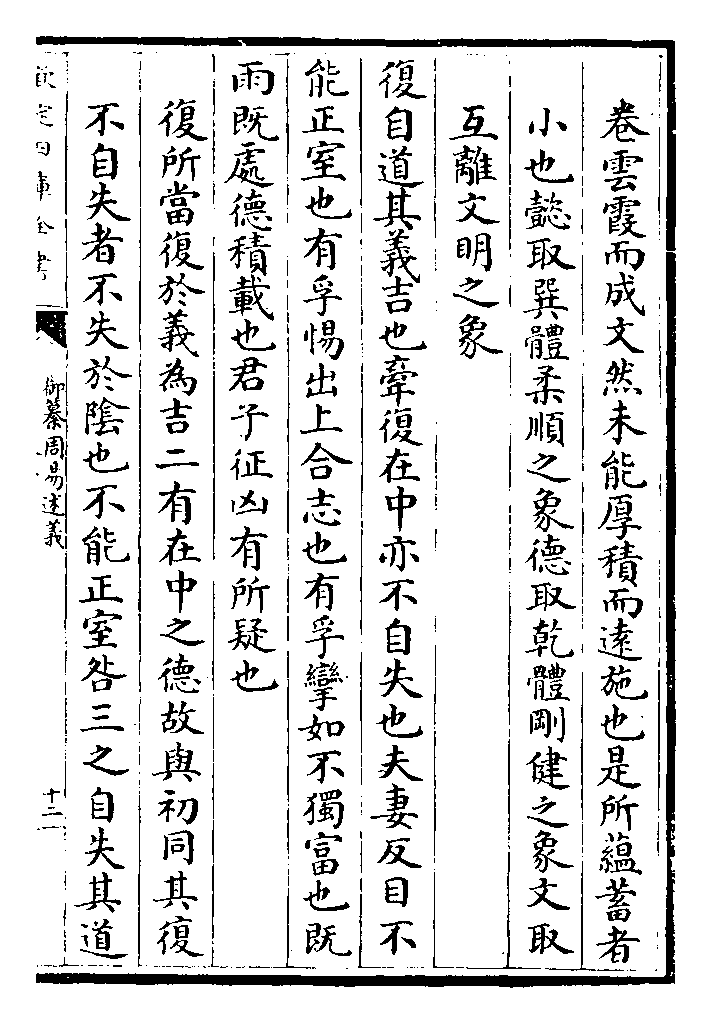 卷雲霞而成文然未能厚積而遠施也是所蘊蓄者
小也懿取巽體柔順之象德取乾體剛健之象文取
互離文明之象
復自道其義吉也牽復在中亦不自失也夫妻反目不
能正室也有孚惕出上合志也有孚攣如不獨富也既
雨既處德積載也君子征凶有所疑也
復所當復於義為吉二有在中之德故與初同其復
不自失者不失於陰也不能正室咎三之自失其道
欽定四庫全書
御纂周易述義
十二